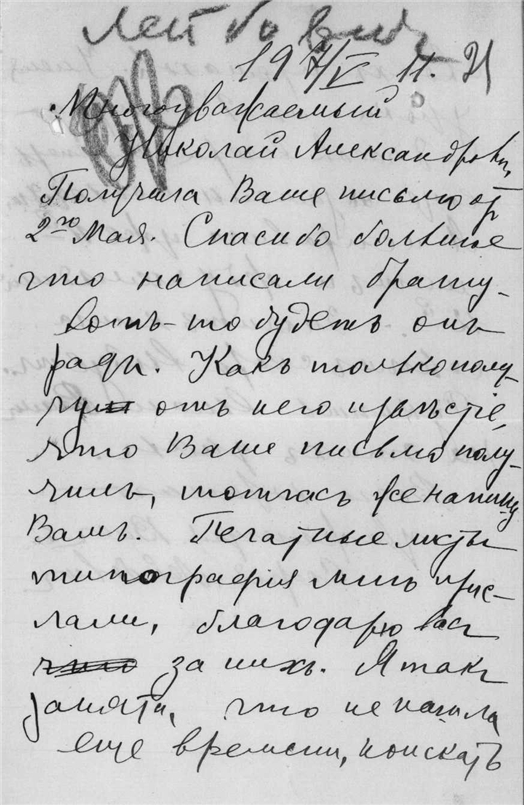 19 7/V 11. 21
Многоуважаемый
Николай Александрович,
Получила Ваше письмо от
2го Мая. Спасибо большое
что написали брату,
вотъ-то будетъ онъ
радъ. Какъ только полу-
чу отъ него извѣстіе,
что Ваше письмо полу-
чилъ, тотчасъ же напишу
Вамъ. Печатные листы
типографія мнѣ прис-
лала, благодарю Васъ
за нихъ. Я такъ
занята, что не нашла
еще времени, поискать